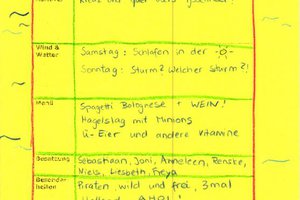 Wind & Wetter
Samstag: Schlafen in der
Sonntag: Sturm? Welcher Sturm?!
Menü
Spagetti Bolognese + WEIN!
Hagelslag mit Minions
Ü-Eier und andere Vitamine
Besatzung
Sebastiaan, Joni, Anneleen, Renske,
Niels, Liesbeth, Freya
Besonderheiten
Piraten, wild und frei, 3mal
AHOI!